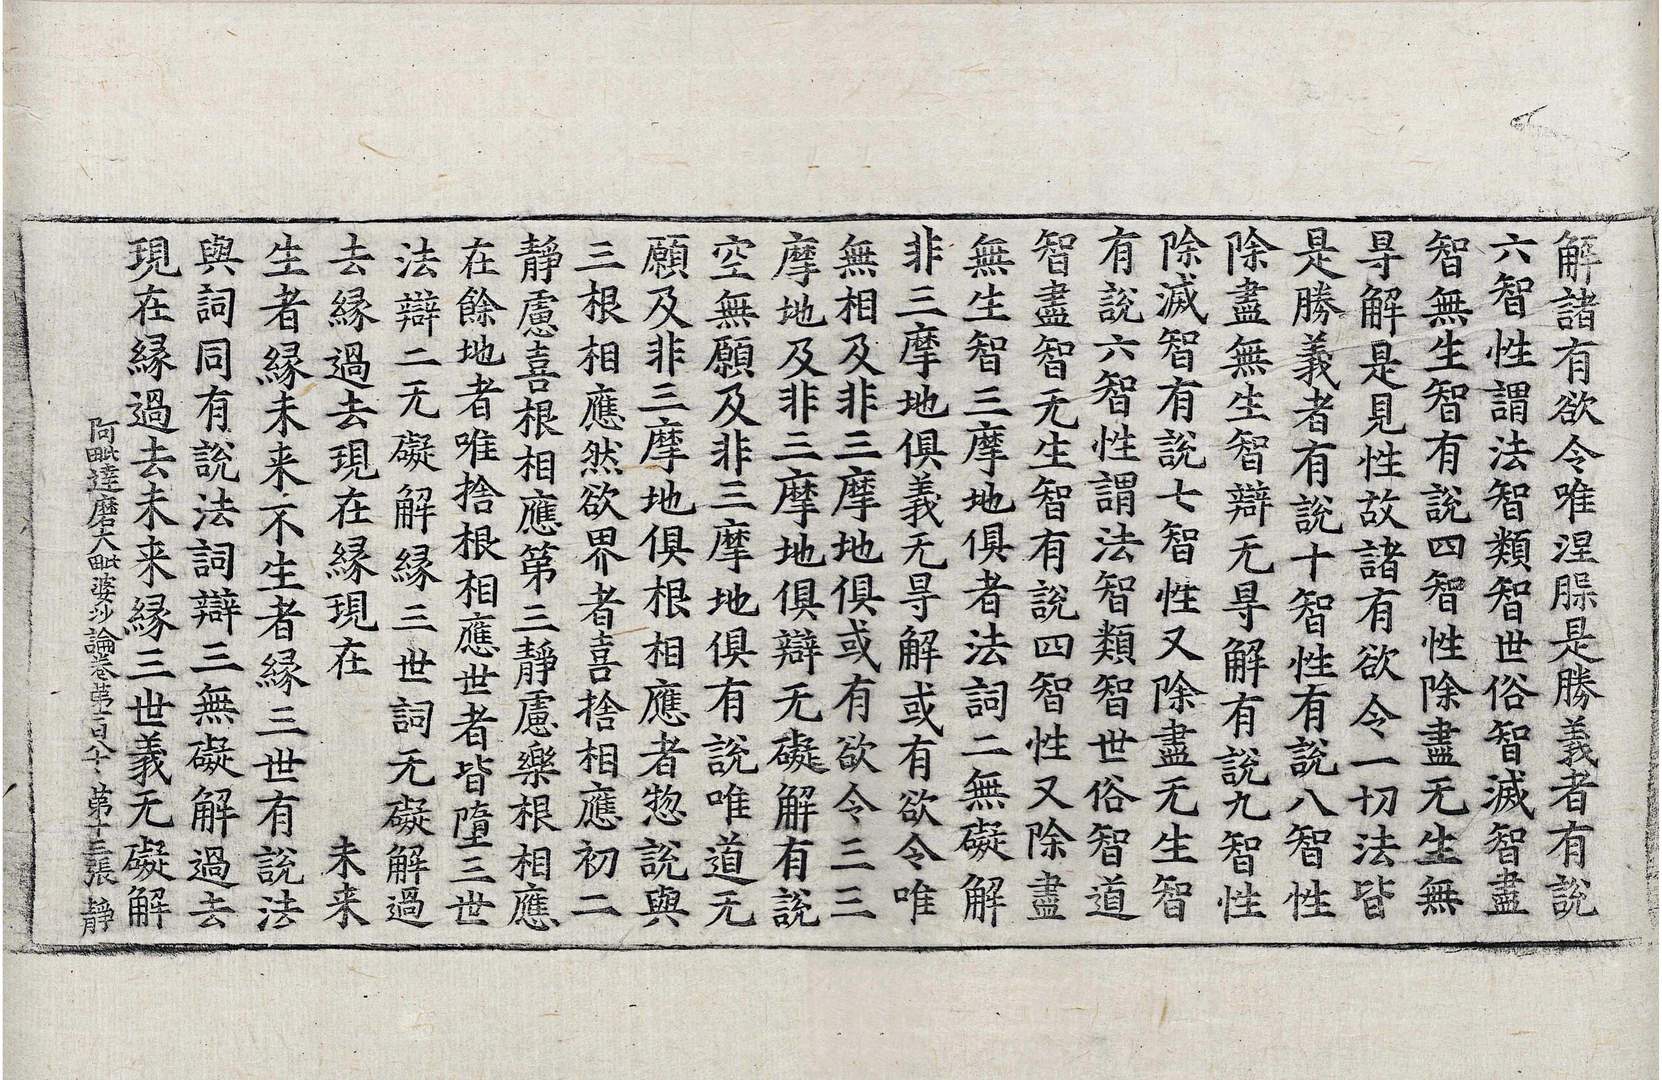 解諸有欲令唯涅槃是勝義者有說
六智性謂法智類智世俗智滅智盡
智無生智有說四智性除盡无生無
㝵解是見性故諸有欲令一切法皆
是勝義者有說十智性有說八智性
除盡無生智辯无㝵解有說九智性
除滅智有說七智性又除盡无生智
有說六智性謂法智類智世俗智道
智盡智无生智有說四智性又除盡
無生智三摩地俱者法詞二無礙解
非三摩地俱義无㝵解或有欲令唯
無相及非三摩地俱或有欲令三三
摩地及非三摩地俱辯无礙解有說
空無願及非三摩地俱有說唯道无
願及非三摩地俱根相應者惣說與
三根相應然欲界者喜捨相應初二
靜慮喜根相應第三靜慮樂根相應
在餘地者唯捨根相應世者皆墮三世
法辯二无礙解緣三世詞无礙解過
去緣過去現在緣現在　未来
生者緣未来不生者緣三世有說法
與詞同有說法詞辯三無礙解過去
現在緣過去未来緣三世義无礙解
阿毗達磨大毗婆沙論卷第一百八十　第十三張　靜